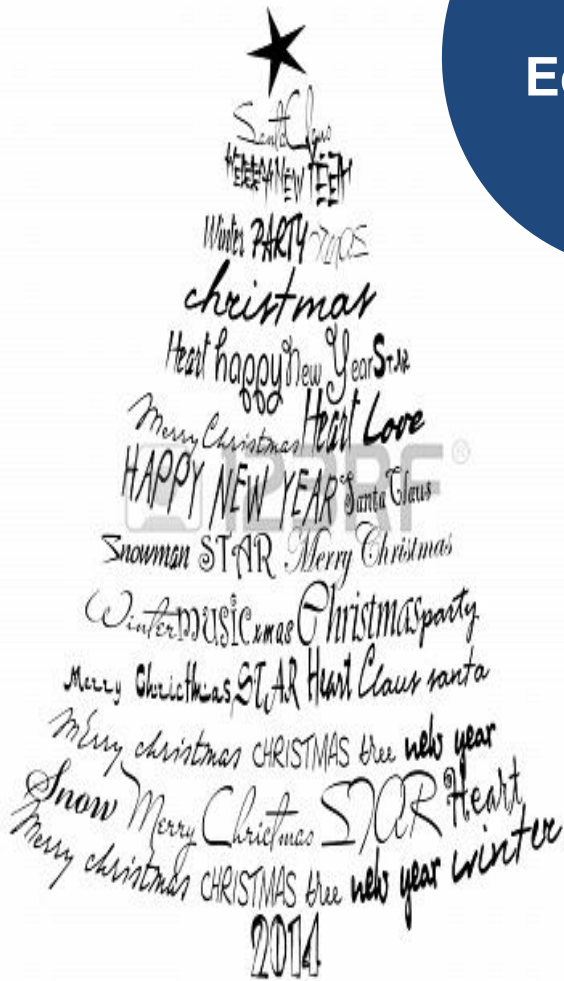 Santa Claus
NEW
Winter PARTY xmas
christmas
Heart happy New Year STAR
Merry Christmas Heart Love
HAPPY NEW YEAR Santa Claus
Snowman STAR Merry Christmas
Winter music xmas Christmas party
Merry Christmas STAR Heart Claus santa
Merry christmas CHRISTMAS tree new year
Snow Merry Christmas STAR Heart
Merry christmas CHRISTMAS tree new year winter
2014
123RF®